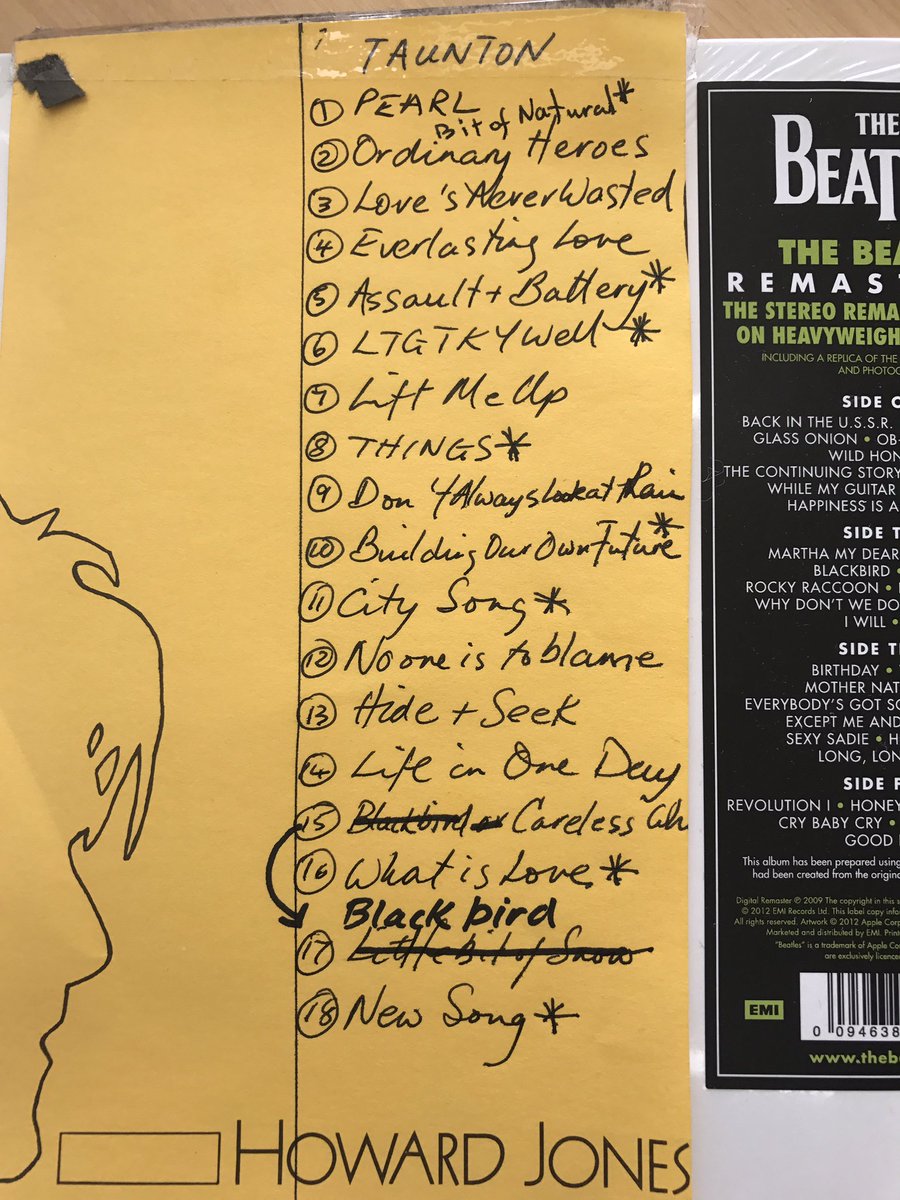 TAUNTON
① PEARL
Bit of Natural*
② Ordinary Heroes
③ Love's Never Wasted
④ Everlasting Love
⑤ Assault + Battery*
⑥ LTGTKY Well *
⑦ Lift Me Up
⑧ THINGS*
⑨ Don Y Always Look at Rain
⑩ Building Our Own Future*
⑪ City Song*
⑫ No one is to blame
⑬ Hide + Seek
⑭ Life in One Day
⑮ Blackbird or Careless Wh
⑯ What is Love*
Black bird
⑰ Little Bit of Snow
⑱ New Song*
HOWARD JONES
THE
BEAT
THE BEA
REMAST
THE STEREO REMA
ON HEAVYWEIGH
INCLUDING A REPLICA OF THE
AND PHOTOG
SIDE O
BACK IN THE U.S.S.R.
GLASS ONION • OB-
WILD HON
THE CONTINUING STORY
WHILE MY GUITAR
HAPPINESS IS A
SIDE T
MARTHA MY DEAR
BLACKBIRD •
ROCKY RACCOON •
WHY DON'T WE DO
I WILL •
SIDE T
BIRTHDAY •
MOTHER NAT
EVERYBODY'S GOT SO
EXCEPT ME AND
SEXY SADIE • H
LONG, LON
SIDE F
REVOLUTION I • HONEY
CRY BABY CRY •
GOOD
This album has been prepared using
had been created from the origina
Digital Remaster ℗ 2009 The copyright in this s
© 2012 EMI Records Ltd. This label copy infor
All rights reserved. Artwork © 2012 Apple Corp
Marketed and distributed by EMI. Print
"Beatles" is a trademark of Apple Cor
are exclusively licence
EMI
0 094638
www.thebe